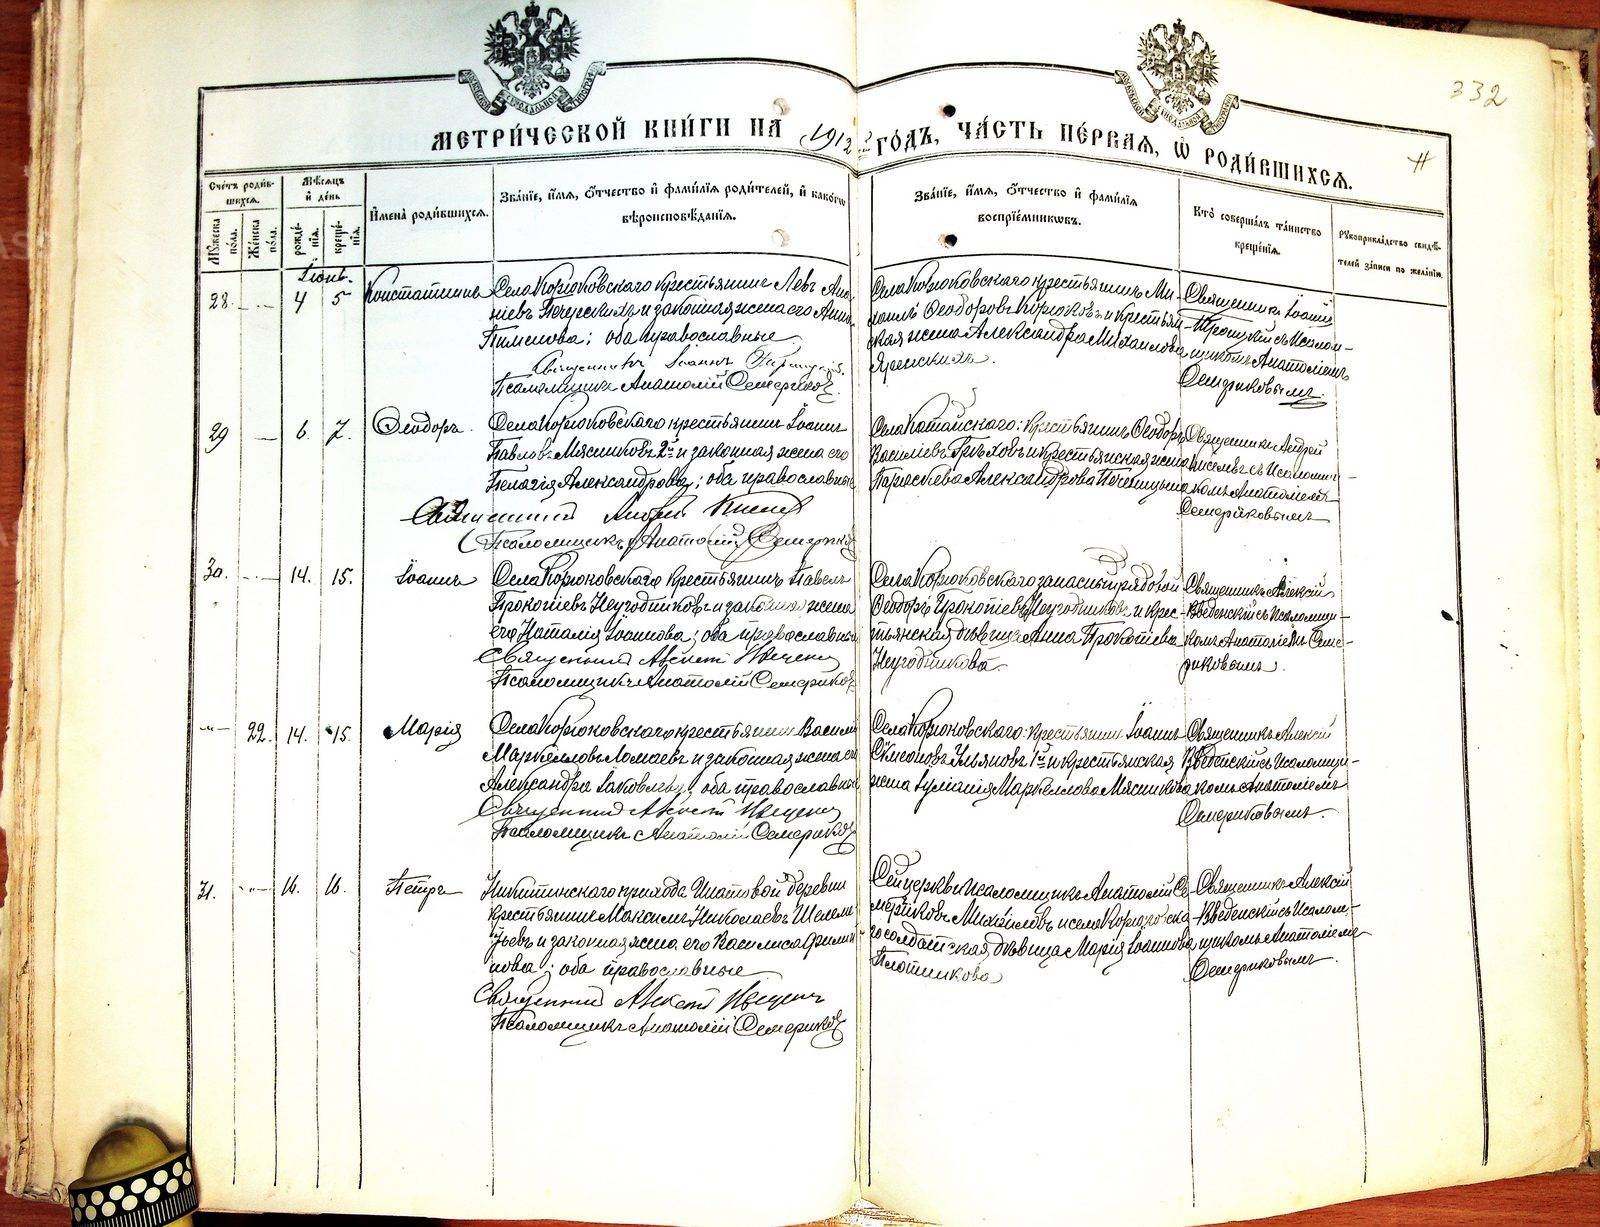 332
МЕТРИЧЕСКОЙ КНИГИ НА 1912 ГОДЪ, ЧАСТЬ ПЕРВАЯ, Ѡ РОДИВШИХСЯ.
Счетъ родив-
шихся.
Мужеска пола.
Женска пола.
Мѣсяцъ и день
рожде-
нія.
креще-
нія.
Имена родившихся.
Званіе, имя, отчество и фамилія родителей, и какогѡ
вѣроисповѣданія.
Званіе, имя, отчество и фамилія
воспріемникѡвъ.
Кто совершалъ таинство
крещенія.
Рукоприкладство свидѣ-
телей записи по желанію.
Іюнь.
28. 4 5 Константинъ
Села Корюковскаго крестьянинъ Левъ Ана-
ніевъ Печерскихъ и законная жена его Анна
Пименова; оба православные
Священникъ Іоаннъ
Псаломщикъ Анатолій Семериковъ.
Села Корюковскаго крестьянинъ Ми-
хаилъ Ѳеодоровъ Корюковъ и крестьян-
ская жена Александра Михаилова
Яренскихъ.
Священникъ Іоаннъ
Троицкій съ псалом-
щикомъ Анатоліемъ
Семериковымъ.
29 6. 7. Ѳеодоръ.
Села Корюковскаго крестьянинъ Іоаннъ
Павловъ Мясниковъ 2й и законная жена его
Пелагія Александрова; оба православные
Священникъ Андрей
Псаломщикъ Анатолій Семериковъ
Села Катайскаго: крестьянинъ Ѳеодоръ
Василіевъ Грѣховъ и крестьянская жена
Параскева Александрова
Священникъ Андрей
съ псаломщи-
комъ Анатоліемъ
Семериковымъ
30. 14. 15. Іоаннъ
Села Корюковскаго крестьянинъ Павелъ
Прокопіевъ Неугодниковъ и законная жена
его Наталія Іоаннова; оба православные
Священникъ Алексій
Псаломщикъ Анатолій Семериковъ
Села Корюковскаго запасный рядовой
Ѳеодоръ Прокопіевъ Неугодниковъ и крес-
тьянская дѣвица Анна Прокопіева
Неугодникова.
Священникъ Алексій
Введенскій съ псаломщи-
комъ Анатоліемъ Семе-
риковымъ.
22. 14. 15. Марія
Села Корюковскаго крестьянинъ Василій
Маркелловъ Ломаевъ и законная жена его
Александра Іаковлева; оба православные
Священникъ Алексій
Псаломщикъ Анатолій Семериковъ
Села Корюковскаго: крестьянинъ Іоаннъ
Сѵмеоновъ Ульяновъ 1й и крестьянская
жена Іуліанія Маркеллова Мясникова
Священникъ Алексій
Введенскій съ псаломщи-
комъ Анатоліемъ
Семериковымъ.
31. 16. 16. Петръ
Никитинскаго прихода Игнатовой деревни
крестьянинъ Максимъ Николаевъ
и законная жена его Василиса Филип-
пова; оба православные
Священникъ Алексій
Псаломщикъ Анатолій Семериковъ
Сей церкви псаломщикъ Анатолій Се-
мериковъ Михаиловъ и села Корюковска-
го солдатская дѣвица Марія Іоаннова
Плотникова
Священникъ Алексій
Введенскій съ псалом-
щикомъ Анатоліемъ
Семериковымъ.